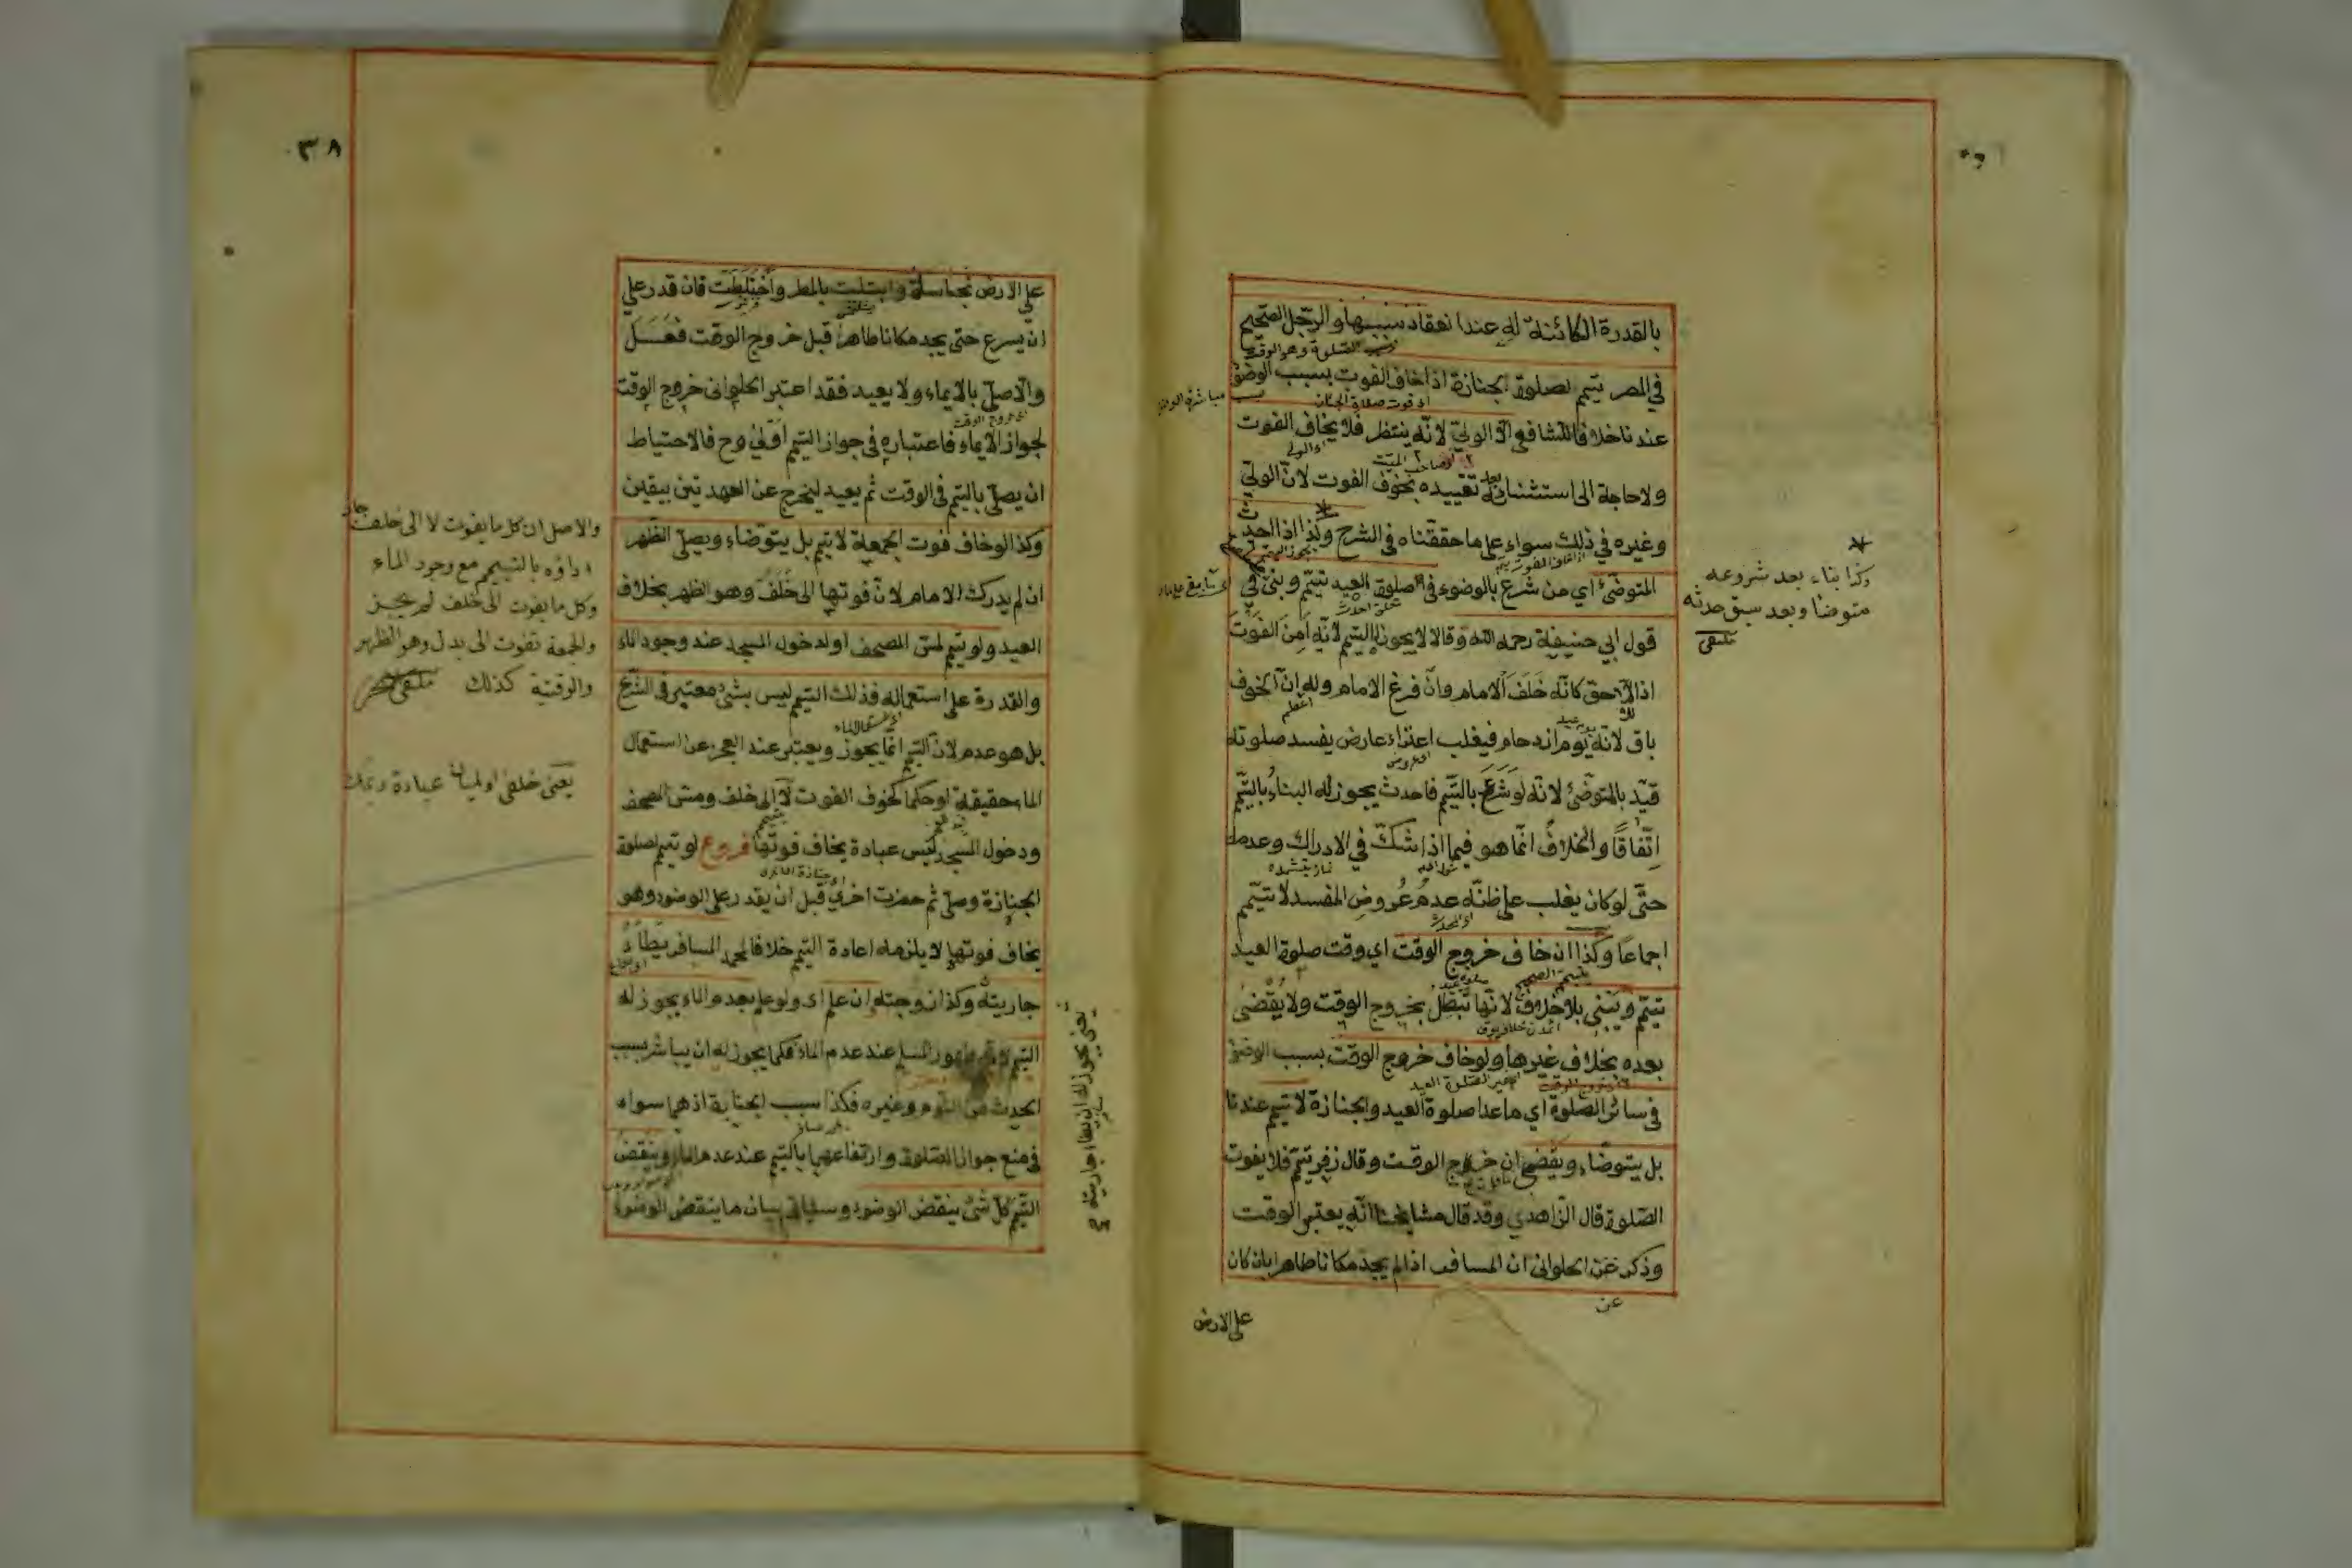 بالقدرة الكائنة له عند انعقاد سببها والرجل الصحيح
في المصر يتيمم لصلوة الجنازة اذا خاف الفوت بسبب الوضوء
عندنا خلافا للشافعي الا الولي لانه ينتظر فلا يخاف الفوت
ولا حاجة الى استثنائه بعد تقييده بخوف الفوت لان الولي
وغيره في ذلك سواء على ما حققناه في الشرح وكذا اذا احدث
المتوضئ اي من شرع بالوضوء في صلوة العيد تيمم وبنى في
قول ابي حنيفة رحمه الله وقالا لا يجوز له التيمم لانه امن الفوت
اذ اللاحق كانه خلف الامام وان فرغ الامام وله ان الخوف
باق لانه يوم ازدحام فيغلب اعتراء عارض يفسد صلوته
قيد بالمتوضئ لانه لو شرع بالتيمم فاحدث يجوز له البناء بالتيمم
اتفاقا والخلاف انما هو فيما اذا شك في الادراك وعدمه
حتى لو كان يغلب على ظنه عدم عروض المفسد لا تيمم
اجماعا وكذا ان خاف خروج الوقت اي وقت صلوة العيد
تيمم ويبنى بلا خلاف لانها تبطل بخروج الوقت ولا يقضى
بعده بخلاف غيرها ولو خاف خروج الوقت بسبب الوضوء
في سائر الصلوة اي ما عدا صلوة العيد والجنازة لا تيمم عندنا
بل يتوضاء ويقضي ان خرج الوقت وقال زفر تيمم فلا يفوت
الصلوة قال الزاهدي وقد قال مشايخنا انه يعتبر الوقت
وذكر عن الحلواني ان المسافر اذا لم يجد مكانا طاهرا بان كان
على الارض
وكذا بناء بعد شروعه
متوضئا وبعد سبق حدثه
ملتقى
٣٨
على الارض نجاسة وابتلت بالمطر واختلطت فان قدر على
ان يسرع حتى يجد مكانا طاهرا قبل خروج الوقت فعل
والا صلى بالايماء ولا يعيد فقد اعتبر الحلواني خروج الوقت
لجواز الايماء فاعتباره في جواز التيمم اولى وح فالاحتياط
ان يصلي بالتيمم في الوقت ثم يعيد ليخرج عن العهدتين بيقين
وكذا لو خاف فوت الجمعة لا يتيمم بل يتوضاء ويصلي الظهر
ان لم يدرك الامام لان فوتها الى خلف وهو الظهر بخلاف
العيد ولو تيمم لمس المصحف او لدخول المسجد عند وجود الماء
والقدرة على استعماله فذلك التيمم ليس بشئ معتبر في الشرع
بل هو عدم لان التيمم انما يجوز ويعتبر عند العجز عن استعمال
الماء حقيقة او حكما كخوف الفوت لا الى خلف ومس المصحف
ودخول المسجد ليس عبادة يخاف فوتها فروع لو تيمم لصلوة
الجنازة وصلى ثم حضرت اخرى قبل ان يقدر على الوضوء وهو
يخاف فوتها لا يلزمه اعادة التيمم خلافا لمحمد المسافر يطاء
جاريته وكذا زوجته ان علم اي ولو علم بعدم الماء يجوز له
التيمم طهور المسلم عند عدم الماء فكما يجوز له ان يباشر سبب
الحدث من النوم وغيره فكذا سبب الجنابة اذ هما سواء
في منع جواز الصلوة وارتفاعهما بالتيمم عند عدم الماء وينقض
التيمم كل شئ ينقض الوضوء وسيأتي بيان ما ينقض الوضوء
والاصل ان كل ما يفوت لا الى خلف جاز
اداؤه بالتيمم مع وجود الماء
وكل ما يفوت الى خلف لم يجز
والجمعة تفوت الى بدل وهو الظهر
والوقتية كذلك ملتقى
يعني يجوز له ان يطاء جاريته